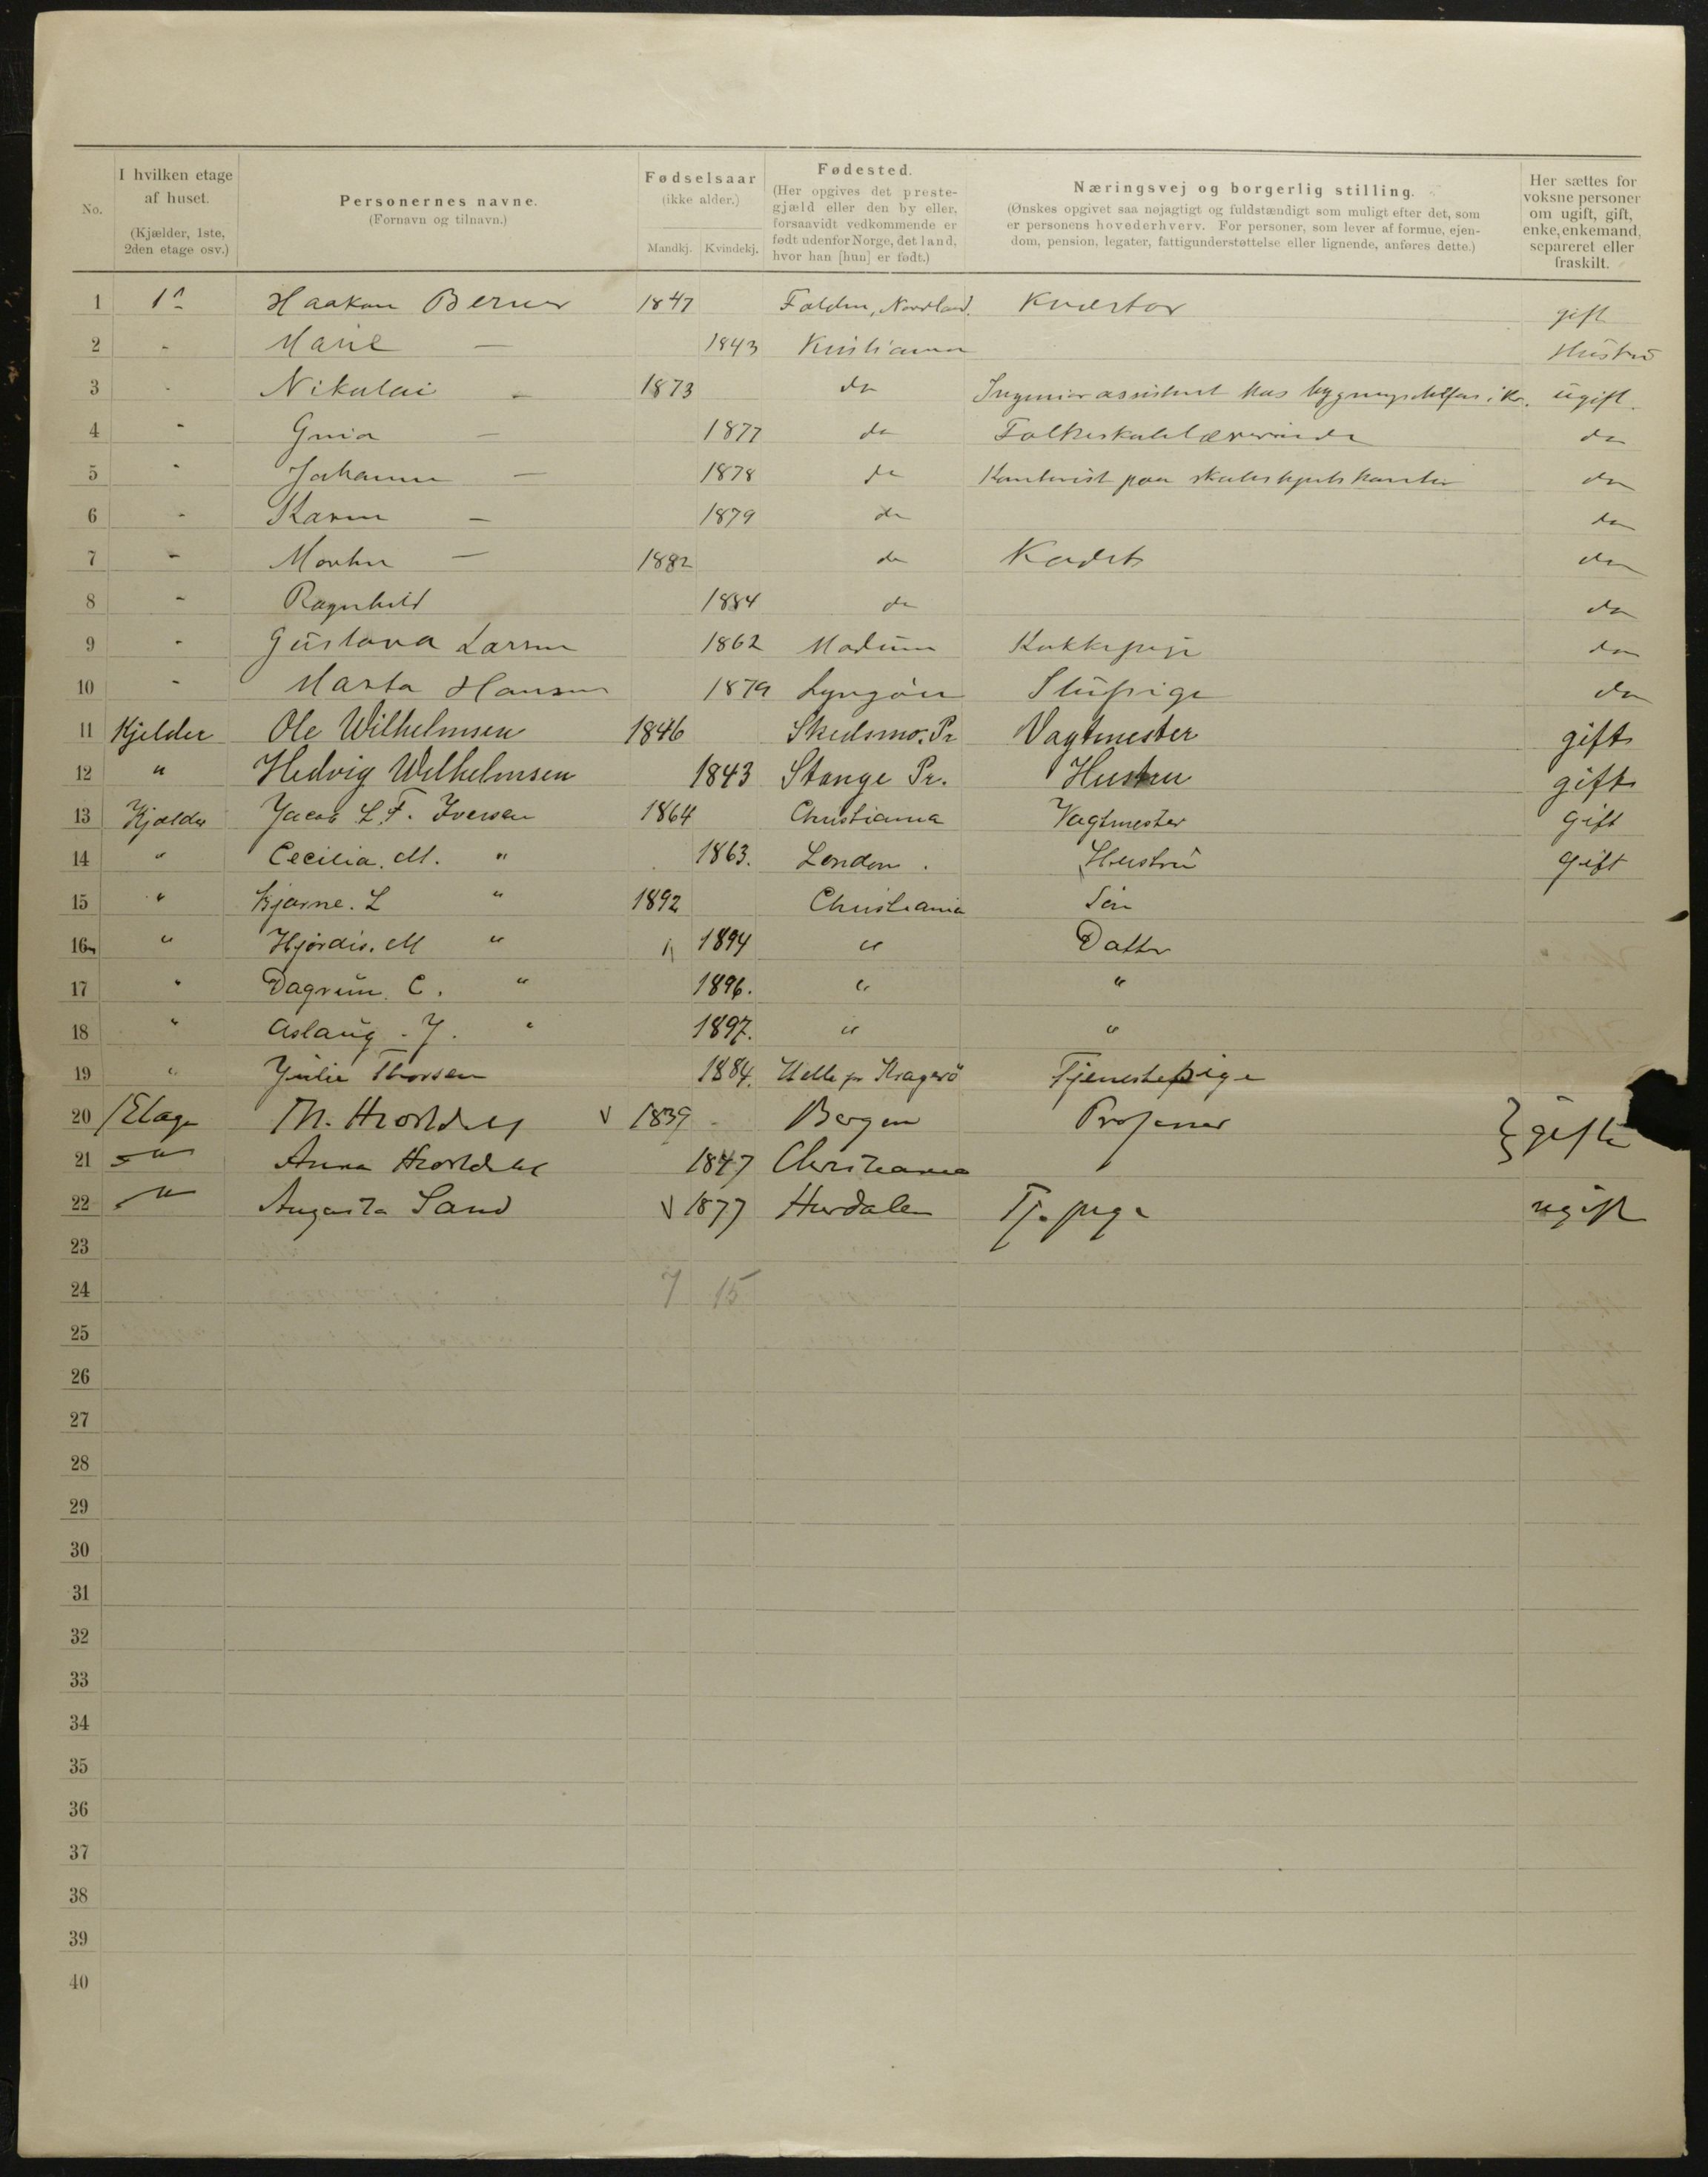 No.
I hvilken etage
af huset.
(Kjælder, 1ste,
2den etage osv.)
Personernes navne.
(Fornavn og tilnavn.)
Fødselsaar
(ikke alder.)
Mandkj. Kvindekj.
Fødested.
(Her opgives det preste-
gjæld eller den by eller,
forsaavidt vedkommende er
født udenfor Norge, det land,
hvor han [hun] er født.)
Næringsvej og borgerlig stilling.
(Ønskes opgivet saa nøjagtigt og fuldstændigt som muligt efter det, som
er personens hovederhverv. For personer, som lever af formue, ejen-
dom, pension, legater, fattigunderstøttelse eller lignende, anføres dette.)
Her sættes for
voksne personer
om ugift, gift,
enke, enkemand,
separeret eller
fraskilt.
1 1ᵗ Haakon Berner 1847 Folden, Nordland. Kvæstor gift
2 - Marie — 1843 Kristiania Hustru
3 - Nikolai — 1873 do Ingeniørassistent hos bygningschefen i Kr. ugift.
4 - — 1877 do Folkeskolelærerinde do
5 - Johanne — 1878 do Kontorist paa do
6 - Karen — 1879 do do
7 - Morten — 1882 do Kadet do
8 - Ragnhild 1884 do do
9 - Gustava Larsen 1862 Modum Kokkepige do
10 - Marta Hansen 1879 Lyngør Stuepige do
11 Kjelder Ole Wilhelmsen 1846 Skedsmo. Pr Vagtmester gift
12 " Hedvig Wilhelmsen 1843 Stange Pr. Hustru gift
13 Kjælder Jacob L. F. Iversen 1864 Christiania Vagtmester gift
14 " Cecilia. M. " 1863. London. Hustru gift
15 " Bjarne. L " 1892 Christiania Søn
16 " Hjørdis. M " 1894 " Datter
17 " Dagrun C. " 1896. " "
18 " Aslaug. J. " 1897. " "
19 " Julie Thorsen 1884. Helle pr Kragerø Tjenestepige
20 1 Etage Th. Hiortdahl V 1839 Bergen Professor } gifte
21 " Anna Hiortdahl 1847 Christiania
22 " Augusta Sand V 1877 Hurdalen Tj. pige ugift
23
24 7 15
25
26
27
28
29
30
31
32
33
34
35
36
37
38
39
40